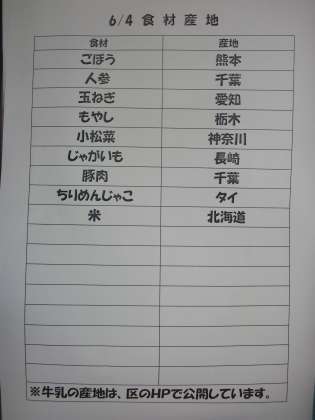 6/4 食材産地
食材 産地
ごぼう 熊本
人参 千葉
玉ねぎ 愛知
もやし 栃木
小松菜 神奈川
じゃがいも 長崎
豚肉 千葉
ちりめんじゃこ タイ
米 北海道
※牛乳の産地は、区のHPで公開しています。